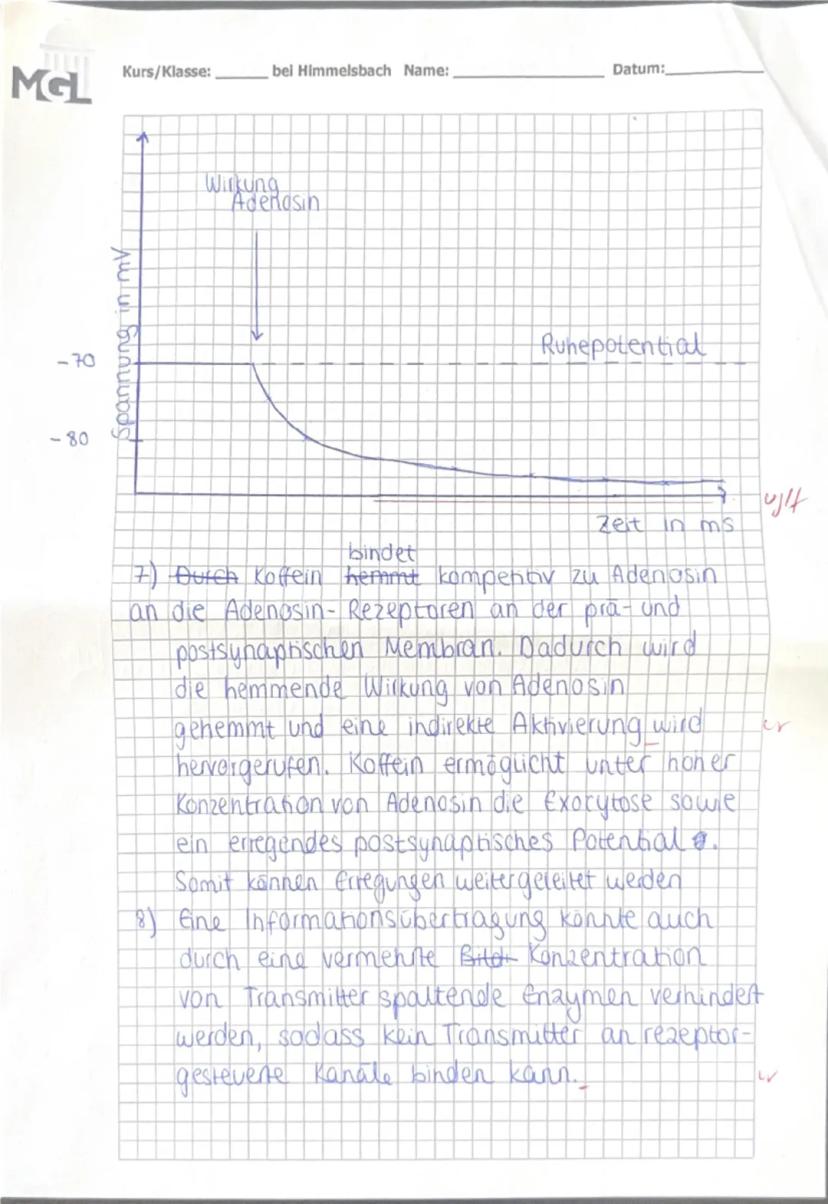 MGL
Kurs/Klasse: bei Himmelsbach Name: Datum:
Wirkung
Adenosin
Spannung in mV
Ruhepotential
-70
-80
Zeit in ms
bindet
7) Durch Koffein hemmt kompetitiv zu Adenosin
an die Adenosin-Rezeptoren an der prä- und
postsynaptischen Membran. Dadurch wird
die hemmende Wirkung von Adenosin
gehemmt und eine indirekte Aktivierung wird
hervorgerufen. Koffein ermöglicht unter hoher
Konzentration von Adenosin die Exocytose sowie
ein erregendes postsynaptisches Potential.
Somit können Erregungen weitergeleitet werden
8) Eine Informationsübertragung könnte auch
durch eine vermehrte Konzentration
von Transmitter spaltende Enzymen verhindert
werden, sodass kein Transmitter an rezeptor-
gesteuerte Kanäle binden kann.